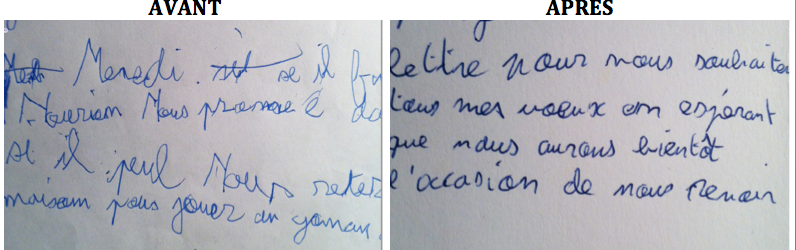 AVANT
Mercredi se il
Nous promené
si il peut Nous rester
maison pous jouer au
APRÈS
lettre pour nous souhaiter
tous mes voeux en espérant
que nous aurons bientôt
l'occasion de nous revoir